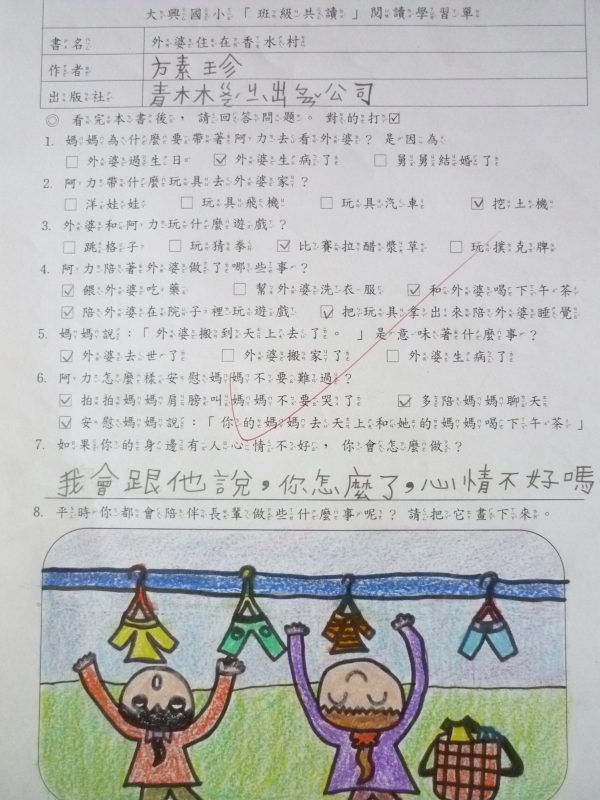 大興國小「班級共讀」閱讀學習單
書名 外婆住在香水村
作者 方素珍
出版社 青木木ㄍㄨㄥ出ㄅㄢˇ公司
◎ 看完本書後，請回答問題。對的打☑
1. 媽媽為什麼要帶著阿力去看外婆？是因為
☐外婆過生日 ☑外婆生病了 ☐舅舅結婚了
2. 阿力帶什麼玩具去外婆家？
☐洋娃娃 ☐玩具飛機 ☐玩具汽車 ☑挖土機
3. 外婆和阿力玩什麼遊戲？
☐跳格子 ☐玩猜拳 ☑比賽拉醋漿草 ☐玩撲克牌
4. 阿力陪著外婆做了哪些事？
☑餵外婆吃藥 ☐幫外婆洗衣服 ☑和外婆喝下午茶
☑陪外婆在院子裡玩遊戲 ☑把玩具拿出來陪外婆睡覺
5. 媽媽說：「外婆搬到天上去了。」是意味著什麼事？
☑外婆去世了 ☐外婆搬家了 ☐外婆生病了
6. 阿力怎麼樣安慰媽媽不要難過？
☑拍拍媽媽肩膀叫媽媽不要哭了 ☑多陪媽媽聊天
☑安慰媽媽說：「你的媽媽去天上和她的媽媽喝下午茶」
7. 如果你的身邊有人心情不好，你會怎麼做？
我會跟他說，你怎麼了，心情不好嗎
8. 平時你都會陪伴長輩做些什麼事呢？請把它畫下來。